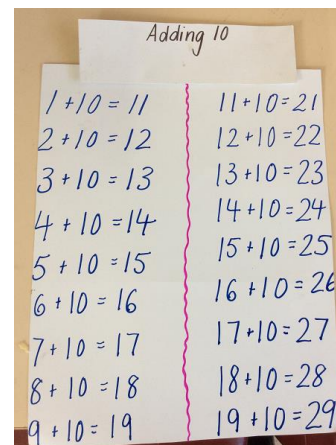 Adding 10
1 + 10 = 11
2 + 10 = 12
3 + 10 = 13
4 + 10 = 14
5 + 10 = 15
6 + 10 = 16
7 + 10 = 17
8 + 10 = 18
9 + 10 = 19
11 + 10 = 21
12 + 10 = 22
13 + 10 = 23
14 + 10 = 24
15 + 10 = 25
16 + 10 = 26
17 + 10 = 27
18 + 10 = 28
19 + 10 = 29